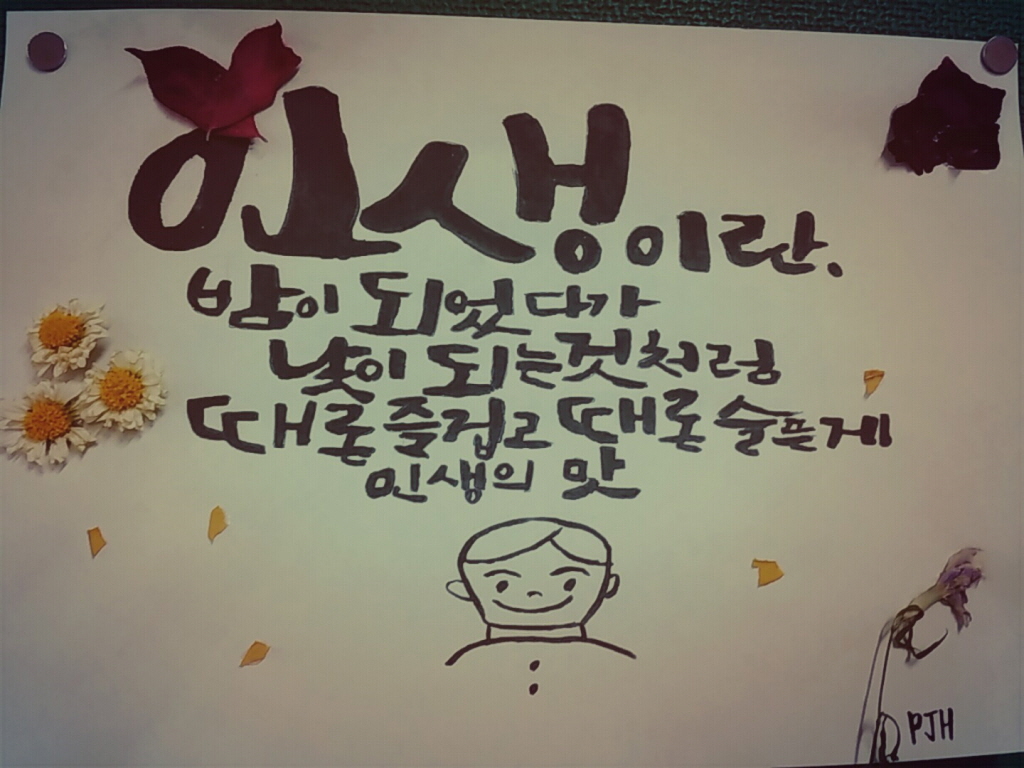 인생이란.
밤이 되었다가
낮이 되는것처럼
때론 즐겁고 때론 슬픈게
인생의 맛
PJH